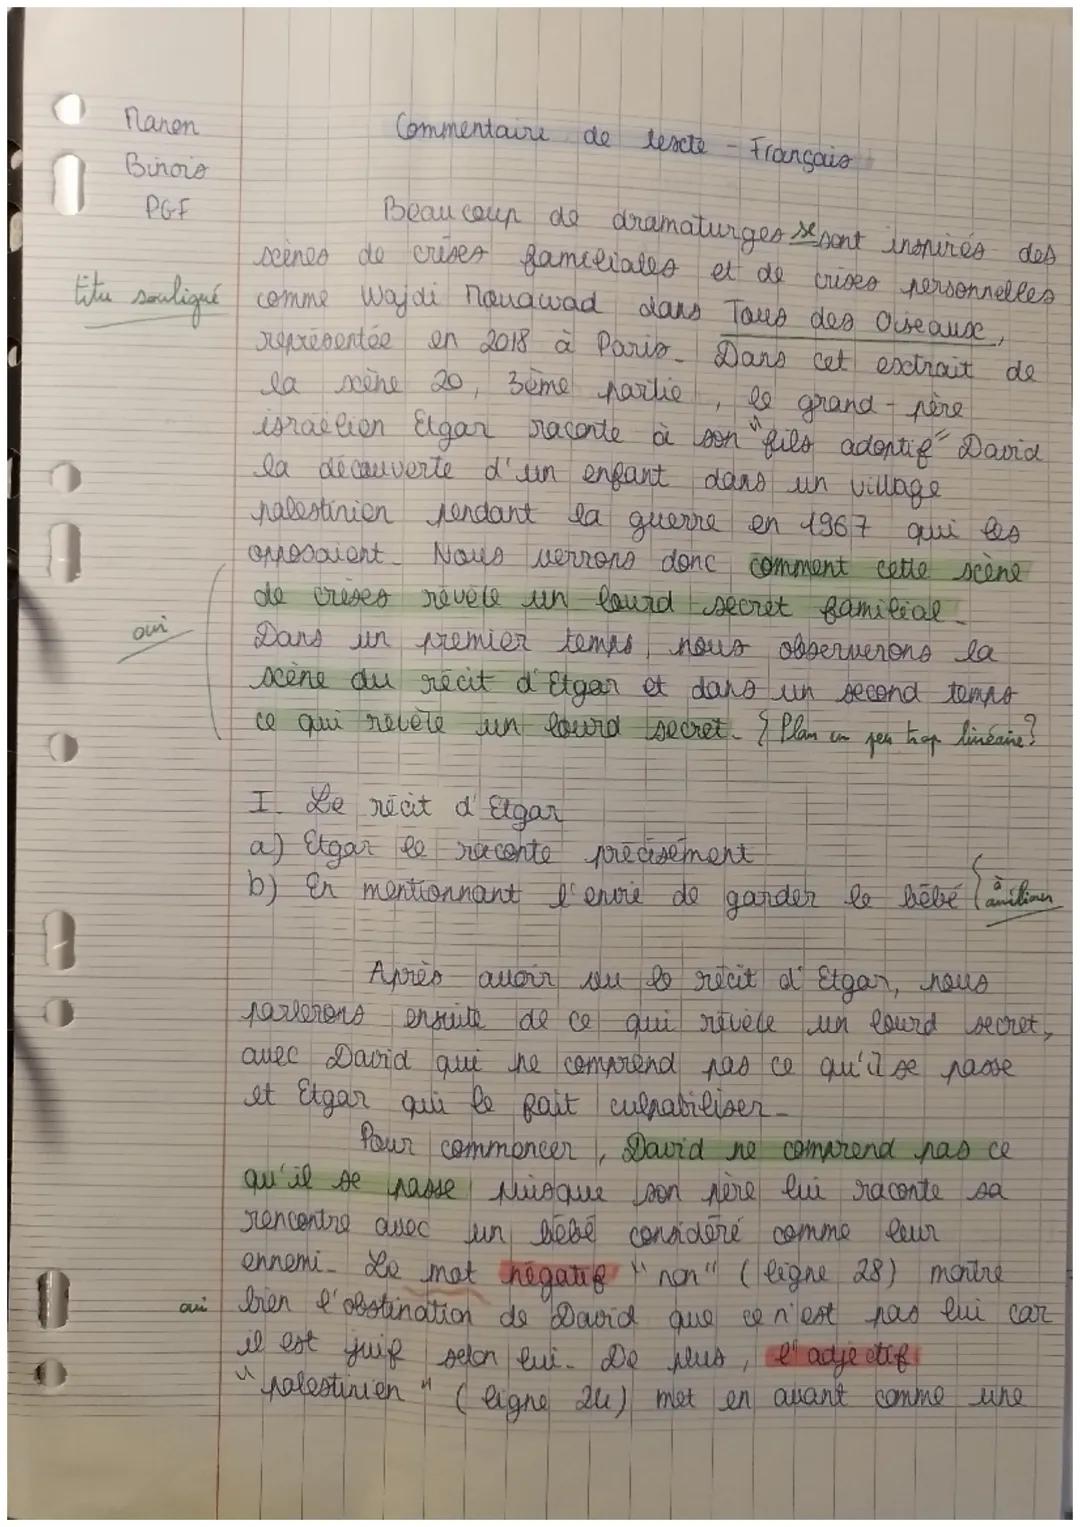 Manon
Commentaire de texte - Français
Binois
PGF
Beaucoup de dramaturges se sont inspirés des
scènes de crises familiales et de crises personnelles
titre souligné
comme Wajdi Mouawad dans Tous des Oiseaux,
représentée en 2018 à Paris. Dans cet extrait de
la scène 20, 3ème partie, le grand-père
israélien Etgar raconte à son "fils adoptif" David
la découverte d'un enfant dans un village
palestinien pendant la guerre en 1967 qui les
opposaient. Nous verrons donc comment cette scène
de crises révèle un lourd secret familial.
oui
Dans un premier temps, nous observerons la
scène du récit d'Etgar et dans un second temps
ce qui révèle un lourd secret. } Plan un peu trop linéaire?
I. Le récit d'Etgar
a) Etgar le raconte précisément
b) En mentionnant l'envie de garder le bébé { à améliorer
Après avoir vu le récit d'Etgar, nous
parlerons ensuite de ce qui révèle un lourd secret,
avec David qui ne comprend pas ce qu'il se passe
et Etgar qui le fait culpabiliser.
Pour commencer, David ne comprend pas ce
qu'il se passe puisque son père lui raconte sa
rencontre avec un bébé considéré comme leur
ennemi. Le mot négatif "non" (ligne 28) montre
oui
bien l'obstination de David que ce n'est pas lui car
il est juif selon lui. De plus, l'adjectif
"palestinien" (ligne 24) met en avant comme une